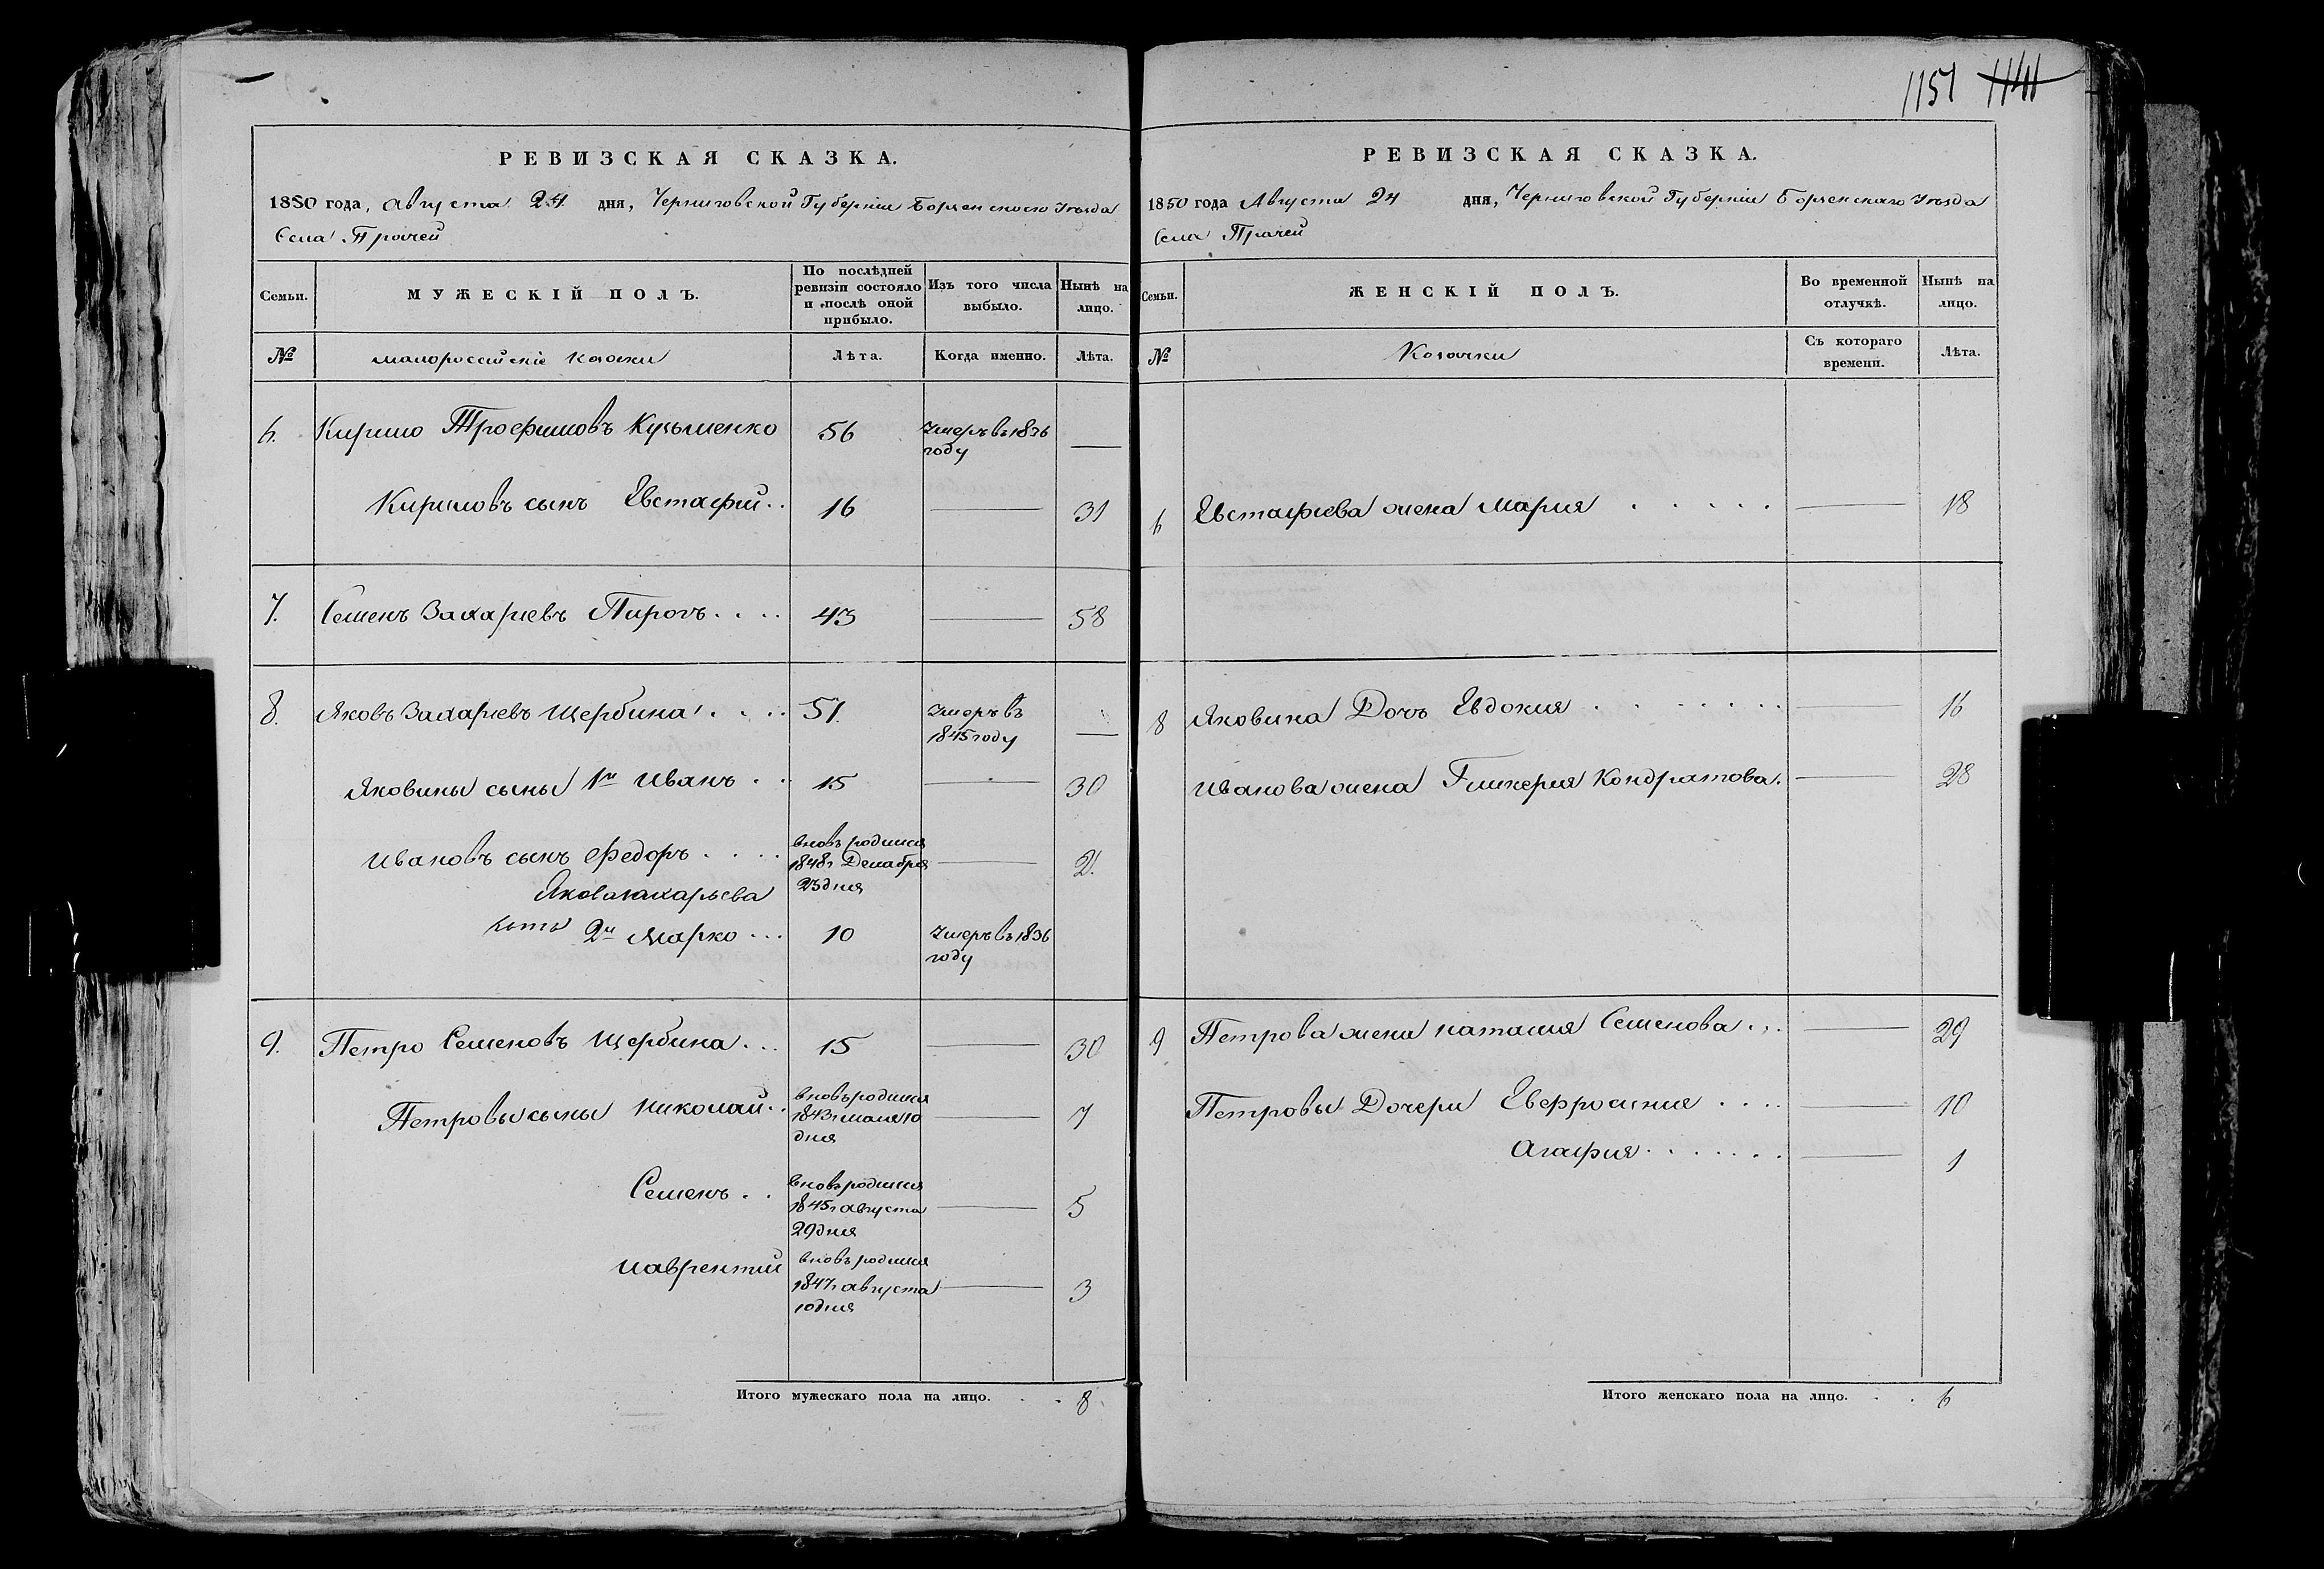 1151 1141
РЕВИЗСКАЯ СКАЗКА.
1850 года, Августа 24 дня, Черниговской Губерніи Борзенского Уѣзда
Села Прачей
Семьи. МУЖЕСКІЙ ПОЛЪ. По послѣдней ревизіи состояло и послѣ оной прибыло. Изъ того числа выбыло. Нынѣ на лицо.
№ малороссийскіе козаки Лѣта. Когда именно. Лѣта.
6. Кирило Трофимовъ Кузьменко 56 Умеръ въ 1836 году —
Кириловъ сынъ Евстафий.. 16 — 31
7. Семенъ Захариевъ Пирогъ.... 43 — 58
8. Яковъ Захариевъ Щербина.... 51. Умеръ въ 1845 году —
Яковины сыны 1й Иванъ.. 15 — 30
Ивановъ сынъ Федоръ.... вновь родился 1848г Декабря 23 дня — 2.
Якова Захарьева
2й Марко... 10 Умеръ въ 1836 году
9. Петро Семеновъ Щербина... 15 — 30
Петровы сыны Николай.. вновь родился 1843г мая 10 дня — 7
Семенъ.. вновь родился 1845г августа 29 дня — 5
Лаврентий вновь родился 1847г августа 10 дня — 3
Итого мужескаго пола на лицо. . . 8
РЕВИЗСКАЯ СКАЗКА.
1850 года Августа 24 дня, Черниговской Губерніи Борзенскаго Уѣзда
Села Прачей
Семьи. ЖЕНСКІЙ ПОЛЪ. Во временной отлучкѣ. Нынѣ на лицо.
№ Козачки Съ котораго времени. Лѣта.
6 Евстафиева жена Мария ..... — 18
8 Яковина Дочъ Евдокия ....... — 16
Иванова жена Гликерия Кондратова. — 28
9 Петрова жена Наталия Семенова... — 29
Петровы Дочери Евфросиния .... — 10
Агафия....... — 1
Итого женскаго пола на лицо. . . 6